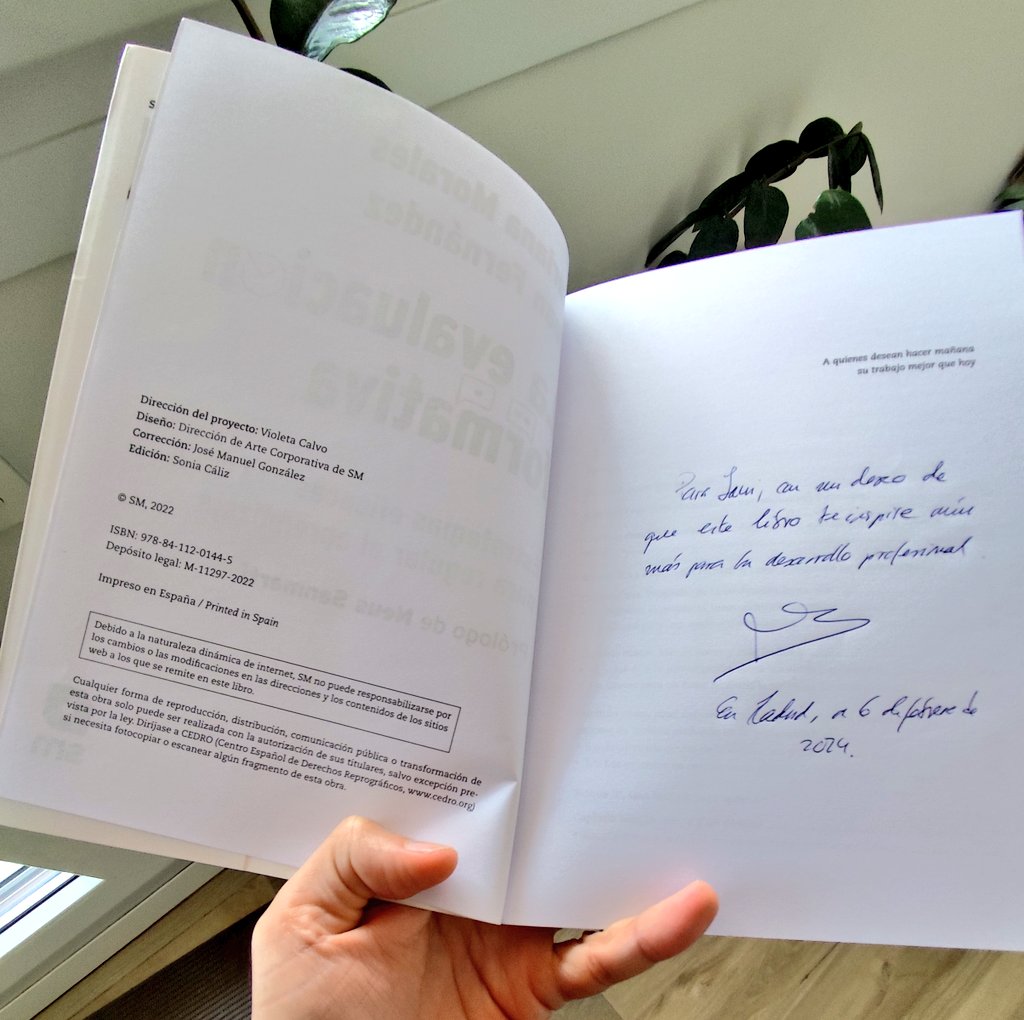 Dirección del proyecto: Violeta Calvo
Diseño: Dirección de Arte Corporativa de SM
Corrección: José Manuel González
Edición: Sonia Cáliz
© SM, 2022
ISBN: 978-84-112-0144-5
Depósito legal: M-11297-2022
Impreso en España / Printed in Spain
Debido a la naturaleza dinámica de internet, SM no puede responsabilizarse por
los cambios o las modificaciones en las direcciones y los contenidos de los sitios
web a los que se remite en este libro.
Cualquier forma de reproducción, distribución, comunicación pública o transformación de
esta obra solo puede ser realizada con la autorización de sus titulares, salvo excepción pre-
vista por la ley. Diríjase a CEDRO (Centro Español de Derechos Reprográficos, www.cedro.org)
si necesita fotocopiar o escanear algún fragmento de esta obra.
A quienes desean hacer mañana
su trabajo mejor que hoy
Para con un deseo de
que este libro te inspire aún
más para tu desarrollo profesional
En Madrid, a 6 de febrero de
2024.